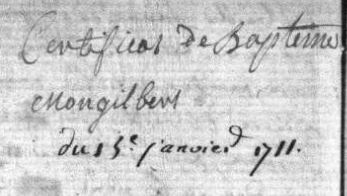 Certificat de Baptême
Mongilbert
du 15e janvier 1711.